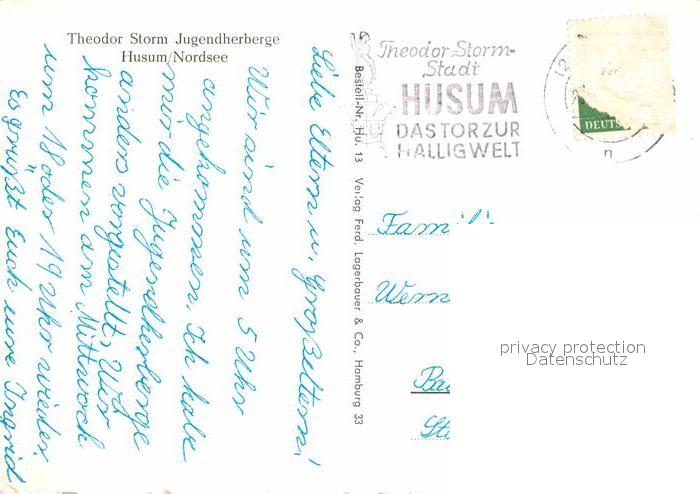 Theodor Storm Jugendherberge
Husum/Nordsee
Liebe Eltern u. Großeltern!
Wir sind um 5 Uhr
angekommen. Ich habe
mir die Jugendherberge
anders vorgestellt. Wir
kommen am Mittwoch
um 18 oder 19 Uhr wieder.
Es grüßt Euch eure Ingrid
Bestell-Nr. Hu. 13 Verlag Ferd. Lagerbauer & Co., Hamburg 33
Theodor-Storm-
Stadt
HUSUM
DAS TOR ZUR
HALLIGWELT
DEUTS
Fam
Wern
privacy protection
Datenschutz